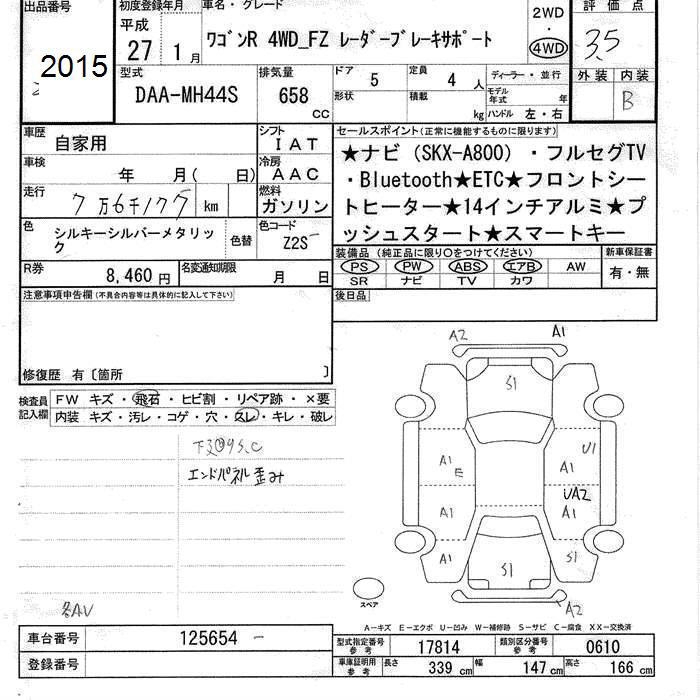 出品番号
2015
初度登録年月
平成
27 1月
車名・グレード
ワゴンR 4WD_FZ レーダーブレーキサポート
2WD
・
4WD
評価点
3.5
外装 内装
B
型式
DAA-MH44S
排気量
658 cc
ドア 5
形状
定員 4 人
積載 kg
ディーラー・並行
モデル年式 年
ハンドル 左・右
車歴 自家用
シフト IAT
車検 年 月( 日)
冷房 AAC
走行 7万6千177 km
燃料 ガソリン
色 シルキーシルバーメタリック
色替
色コード Z2S
R券 8,460 円
名変通知期限 月 日
セールスポイント(正常に機能するものに限ります)
★ナビ(SKX-A800)・フルセグTV
・Bluetooth★ETC★フロントシー
トヒーター★14インチアルミ★プ
ッシュスタート★スマートキー
装備品(純正品に限り○をつけてください)
PS PW ABS エアB AW
SR ナビ TV カワ
新車保証書
有・無
後日品
注意事項申告欄(不具合内容等は具体的に記入して下さい)
修復歴 有〔箇所 〕
検査員記入欄
FW キズ・飛石・ヒビ割・リペア跡・×要
内装 キズ・汚レ・コゲ・穴・スレ・キレ・破レ
エンドパネル歪み
A2 A1
S1
A1 E U1 A1
A1 UA2 A1
A1 S1 S1
A2
スペア
A-キズ E-エクボ U-凹み W-補修跡 S-サビ C-腐食 XX-交換済
車台番号 125654
登録番号
型式指定番号 参考 17814
類別区分番号 参考 0610
車庫証明用 参考 長さ 339 cm 幅 147 cm 高さ 166 cm